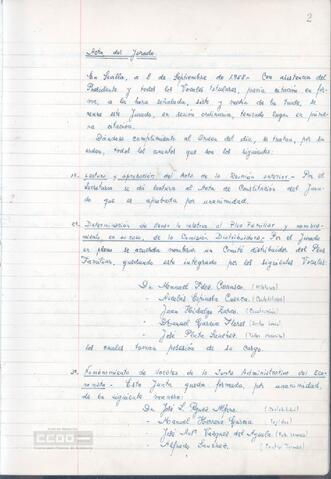 2
Acta del Jurado
En Sevilla, a 8 de Septiembre de 1958 - Con asistencia del
Presidente y todos los Vocales titulares, previa citación en for-
ma, a la hora señalada, siete y media de la tarde, se
reune este Jurado, en sesión ordinaria, teniendo lugar en prime-
ra citación.
Dándose cumplimiento al Orden del día, se tratan, por su
orden, todos los asuntos que son los siguientes:
1º.- Lectura y aprobación del Acta de la Reunión anterior.- Por el
Secretario se dá lectura al Acta de Constitución del Jura-
do que es aprobada por unanimidad.
2º.- Determinación de llevar lo relativo al Plus Familiar y nombra-
miento, en su caso, de la Comisión Distribuidora.- Por el Jurado
en pleno se acuerda nombrar un Comité distribuidor del Plus
Familiar, quedando este integrado por los siguientes Vocales:
Dn. Manuel Fdez Carrasco
" Nicolás Cuenca (Contabilidad)
" Juan Hidalgo
" Manuel García Flores
" José Sánchez
los cuales toman posesión de su cargo.
3º.- Nombramiento de vocales de la Junta Administrativa del Eco-
nomato.- Esta Junta queda formada, por unanimidad,
de la siguiente manera:
Dn. José L. (Contabilidad)
" Manuel Herrera García
" José Mª Vázquez del
" Alfredo Sánchez
CCOO